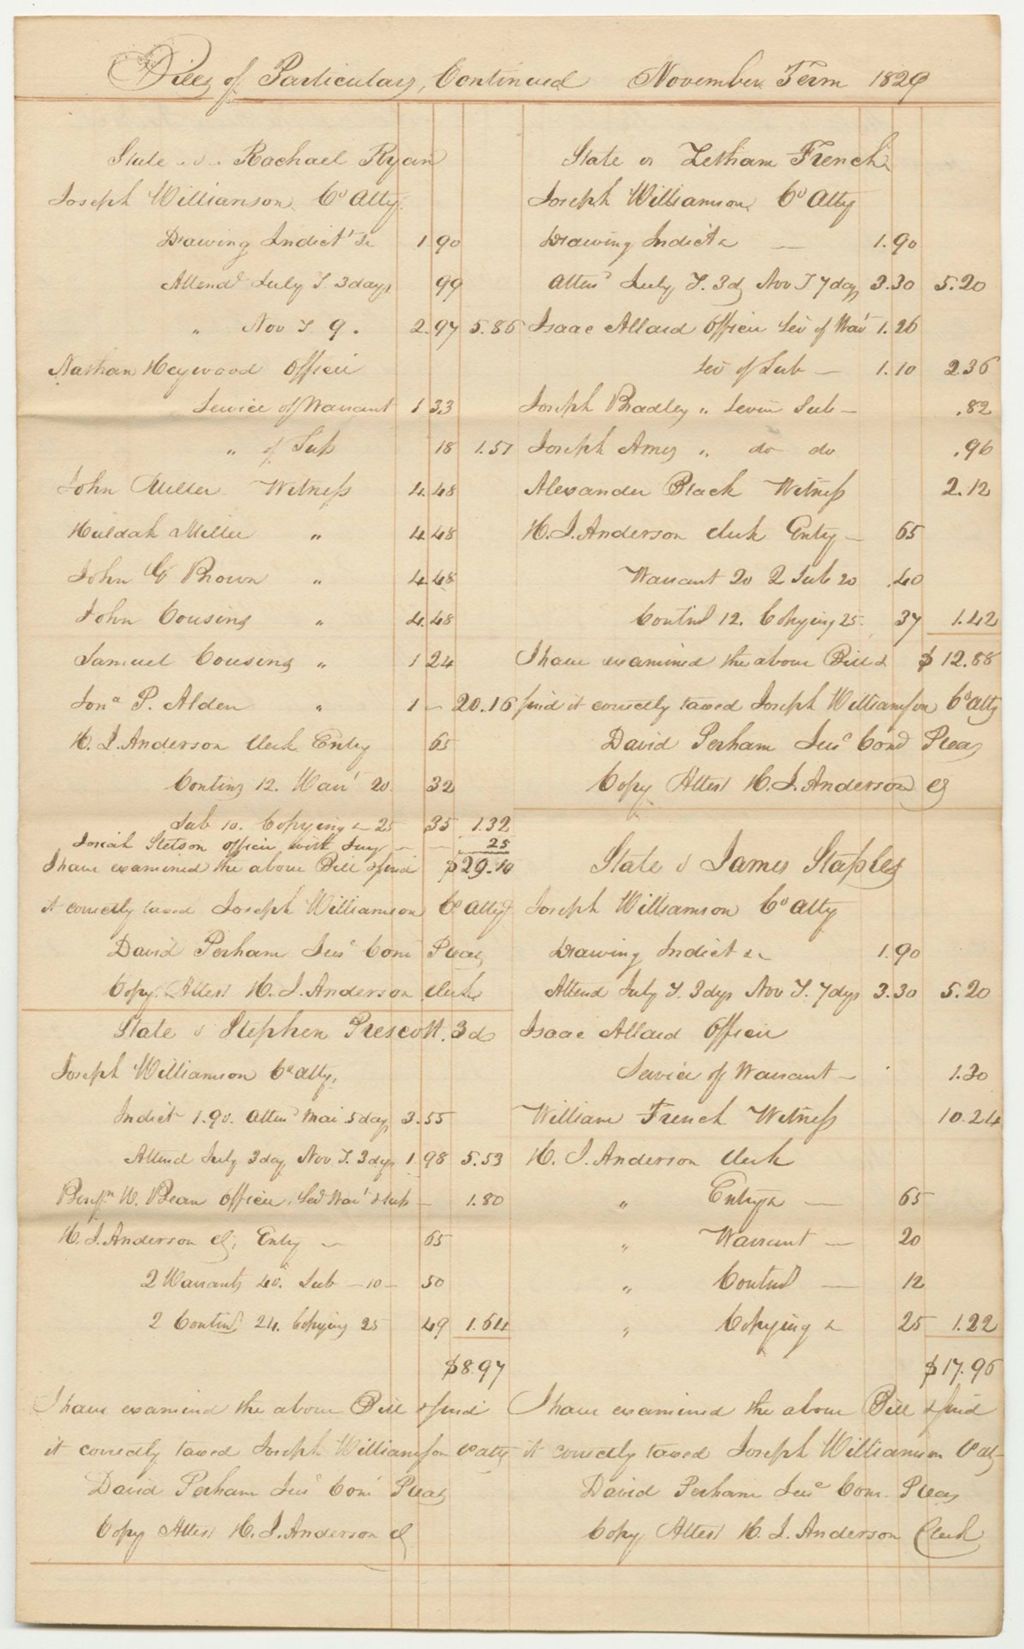 Bills of Particulars, Continued November Term 1829
State vs Rachael Ryan
Joseph Williamson Co Atty
Drawing Indict't &c 1 90
Attend July T. 3 days 99
" Nov T 9. 2.97 5.86
Nathan Heywood Officer
Service of Warrant 1 33
" of Sub 18 1.51
John Miller Witness 4.48
Huldah Miller " 4.48
John G Brown " 4.48
John Cousins " 4.48
Samuel Cousins " 1 24
Jona P. Alden " 1 — 20.16
H. J. Anderson Clerk Entry 65
Conting 12. Warr' 20. 32
Sub 10. Copying &c 25 35 1.32
Josiah Stetson officer with Jury — — 25
I have examined the above Bill & find $29.10
it correctly taxed Joseph Williamson Co Atty
David Perham Jusc Com Pleas
Copy Attest H. J. Anderson Clerk
State vs Stephen Prescott. 3d
Joseph Williamson Co atty.
Indict 1.90. Attend Mar 5 days 3.55
Attend July 3 day Nov T. 3 dys 1 98 5.53
Benjn W. Bean Officer. Serv War' & sub — 1.80
H. J. Anderson Cl; Entry — 65
2 Warrants 40. Sub — 10 — 50
2 Contind 24. Copying 25 49 1.64
$8.97
I have examined the above Bill & find
it correctly taxed Joseph Williamson Co atty
David Perham Jusc Com Pleas
Copy Attest H. J. Anderson Cl
State vs Letham French
Joseph Williamson Co Atty
Drawing Indict &c — 1.90
Attend July T. 3d Nov T 7 days 3.30 5.20
Isaac Allard Officer Ser of War' 1.26
Ser of Sub — 1.10 2.36
Joseph Bradley " Servin Sub — .82
Joseph Ames " do do .96
Alexander Black Witness 2.12
H. J. Anderson Clerk Entry — 65
Warrant 20 2 Sub 20 .40
Contind 12. Copying 25. 37 1.42
I have examined the above Bill & $12.88
find it correctly taxed Joseph Williamson Co atty
David Perham Jusc Com Pleas
Copy Attest H. J. Anderson Cl
State vs James Staples
Joseph Williamson Co atty
Drawing Indict &c 1.90
Attend July T. 3 dys Nov T. 7 dys 3.30 5.20
Isaac Allard Officer
Service of Warrant — 1.30
William French Witness 10.24
H. J. Anderson Clerk
" Entry &c — 65
" Warrant — 20
" Contind — 12
" Copying &c 25 1.22
$17.96
I have examined the above Bill & find
it correctly taxed Joseph Williamson Co aty
David Perham Jusc Com. Pleas
Copy Attest H. J. Anderson Clerk